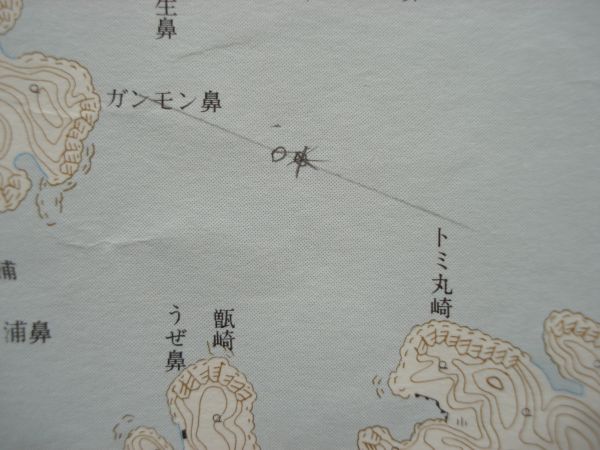 生鼻
ガンモン鼻
トミ丸崎
浦
浦鼻
うぜ鼻
甑崎